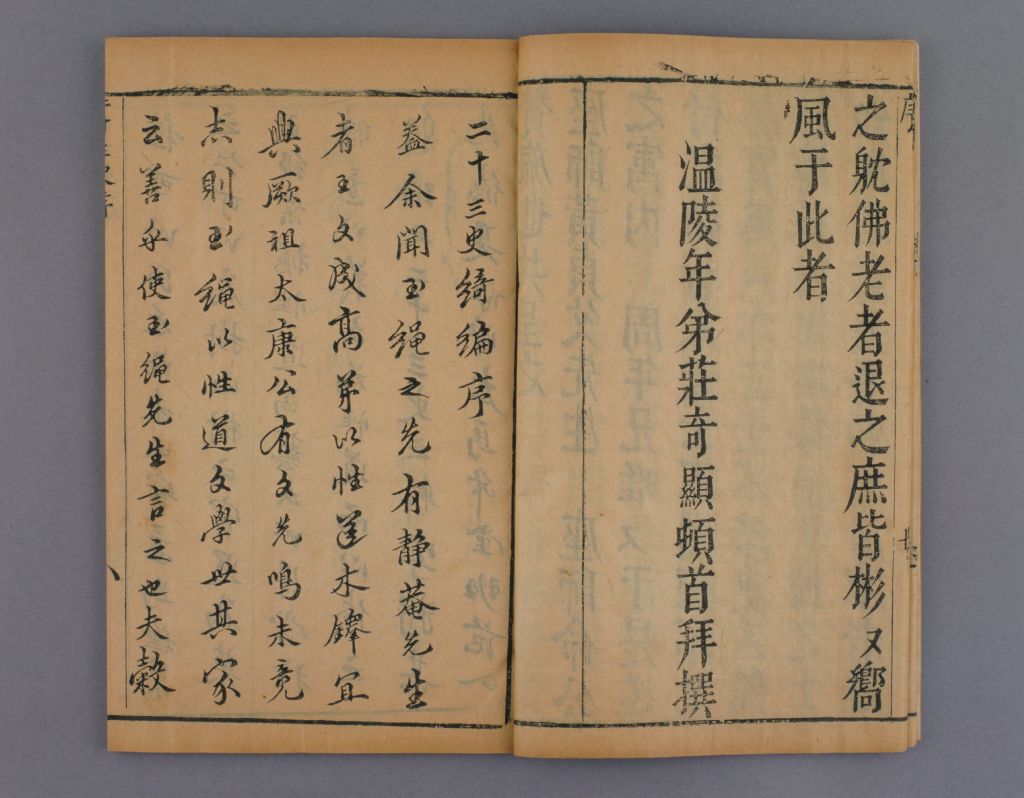 之躭佛老者退之庶皆彬〻嚮
風于此者
温陵年弟莊奇顯頓首拜撰
二十三史綺編序
盖余聞玉繩之先有静菴先生
者王文成高弟以性道木鐸宜
興厥祖太康公有文先鳴未竟
志則玉繩以性道文學世其家
云善乎使玉繩先生言之也夫穀